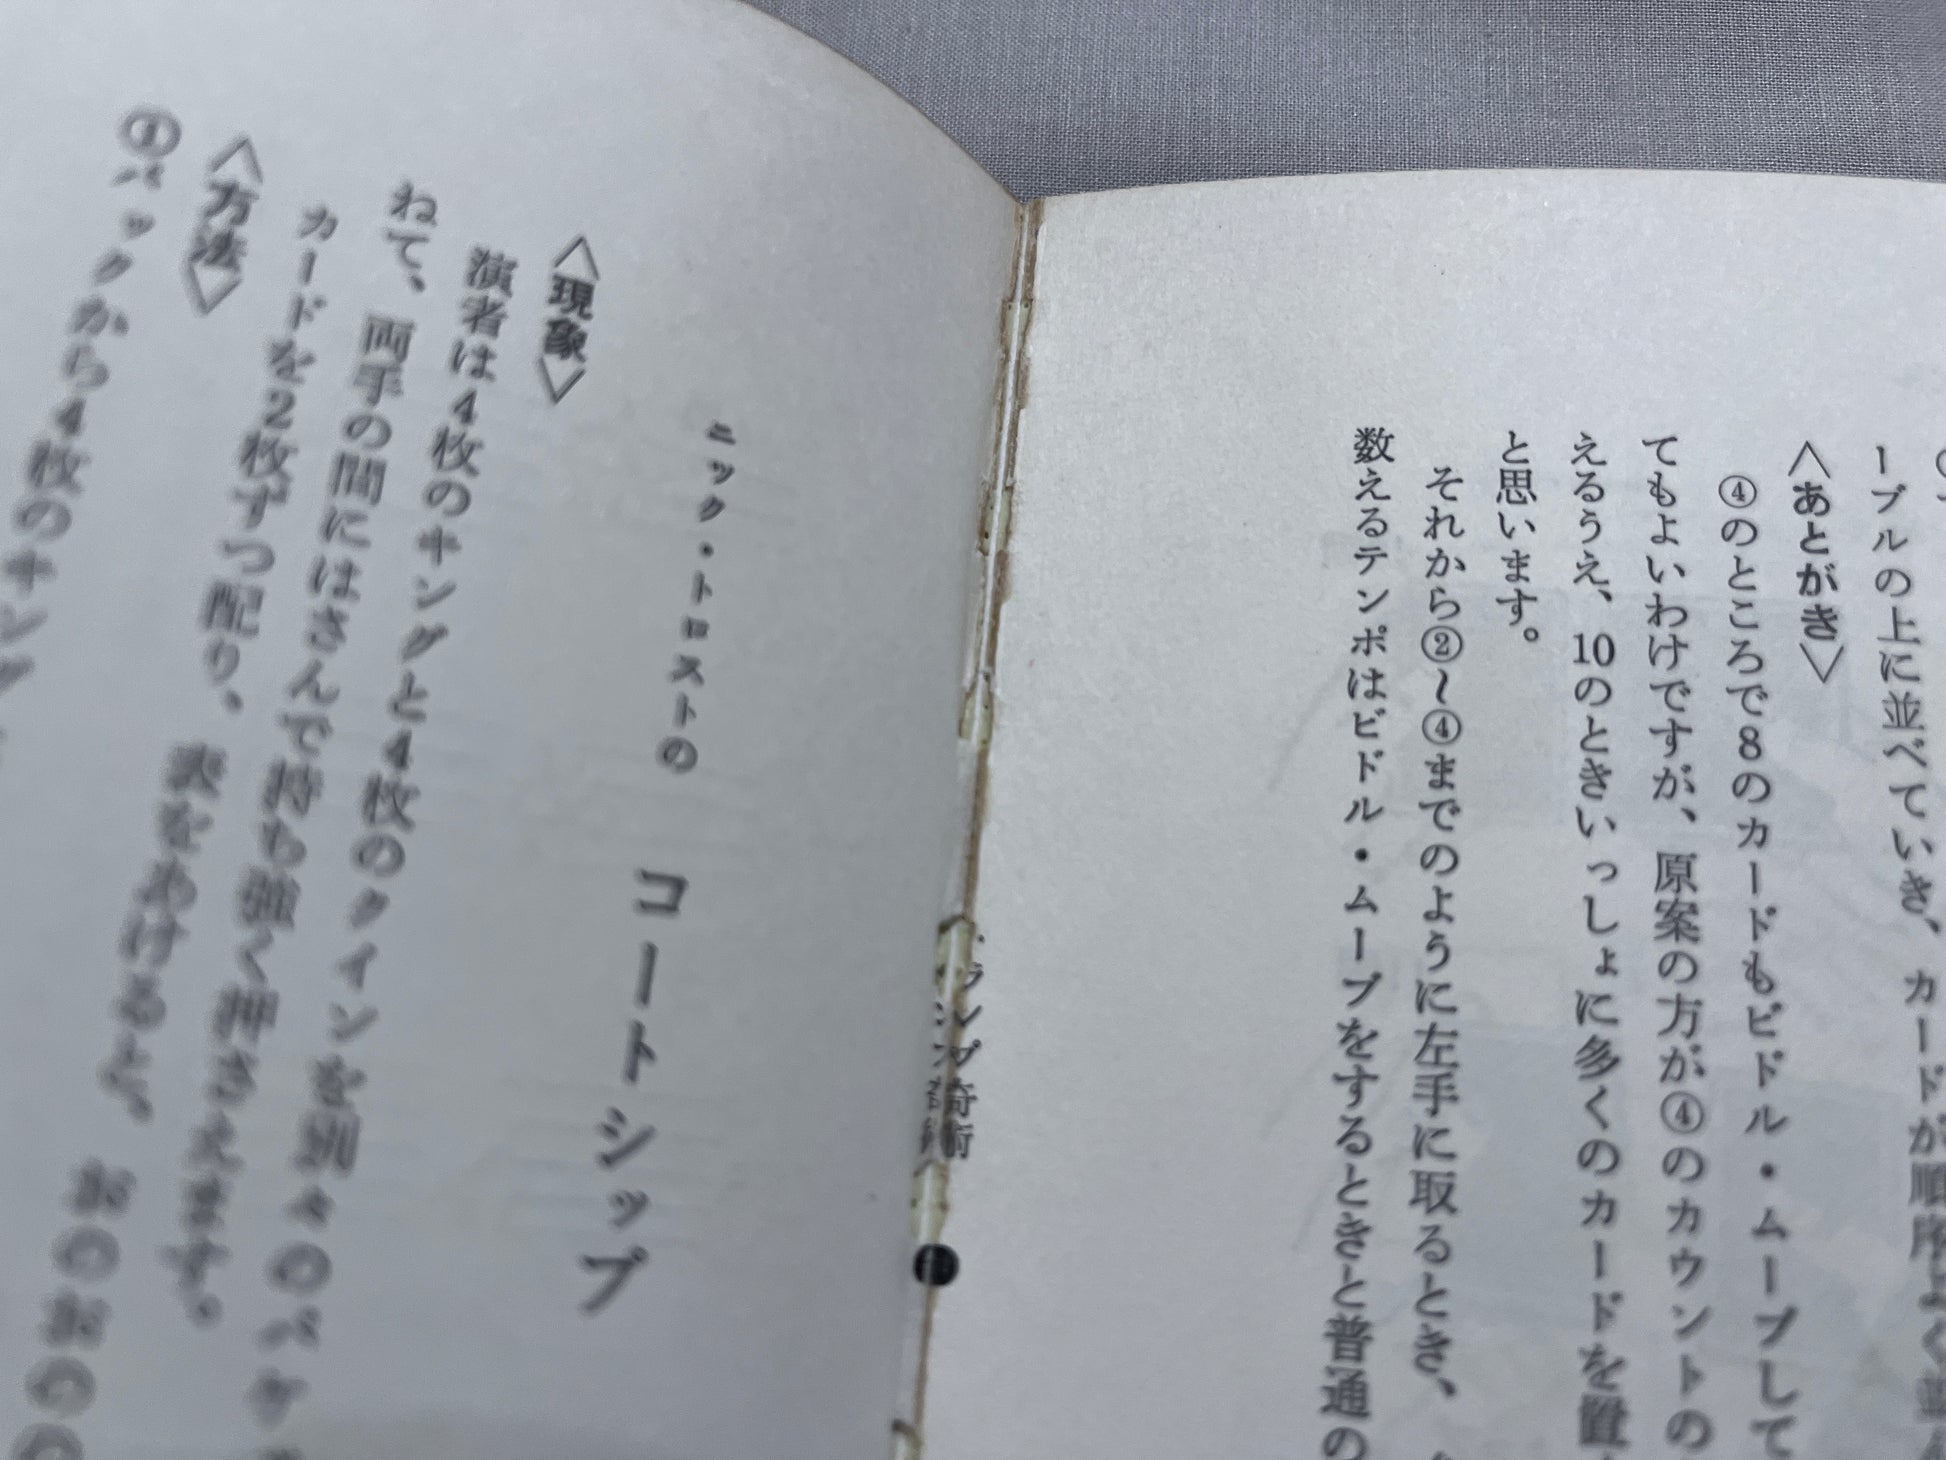 ーブルの上に並べていき、カードが順序よく並ん
〈あとがき〉
④のところで8のカードもビドル・ムーブして
てもよいわけですが、原案の方が④のカウントの
えるうえ、10のときいっしょに多くのカードを置
と思います。
それから②〜④までのように左手に取るとき、
数えるテンポはビドル・ムーブをするときと普通の
ランプ奇術
ニック・トロストの
コートシップ
〈現象〉
演者は4枚のキングと4枚のクインを別々のパケ
ねて、両手の間にはさんで持ち強く押さえます。
カードを2枚ずつ配り、表をあけると、おのおの
〈方法〉
①パックから4枚のキング